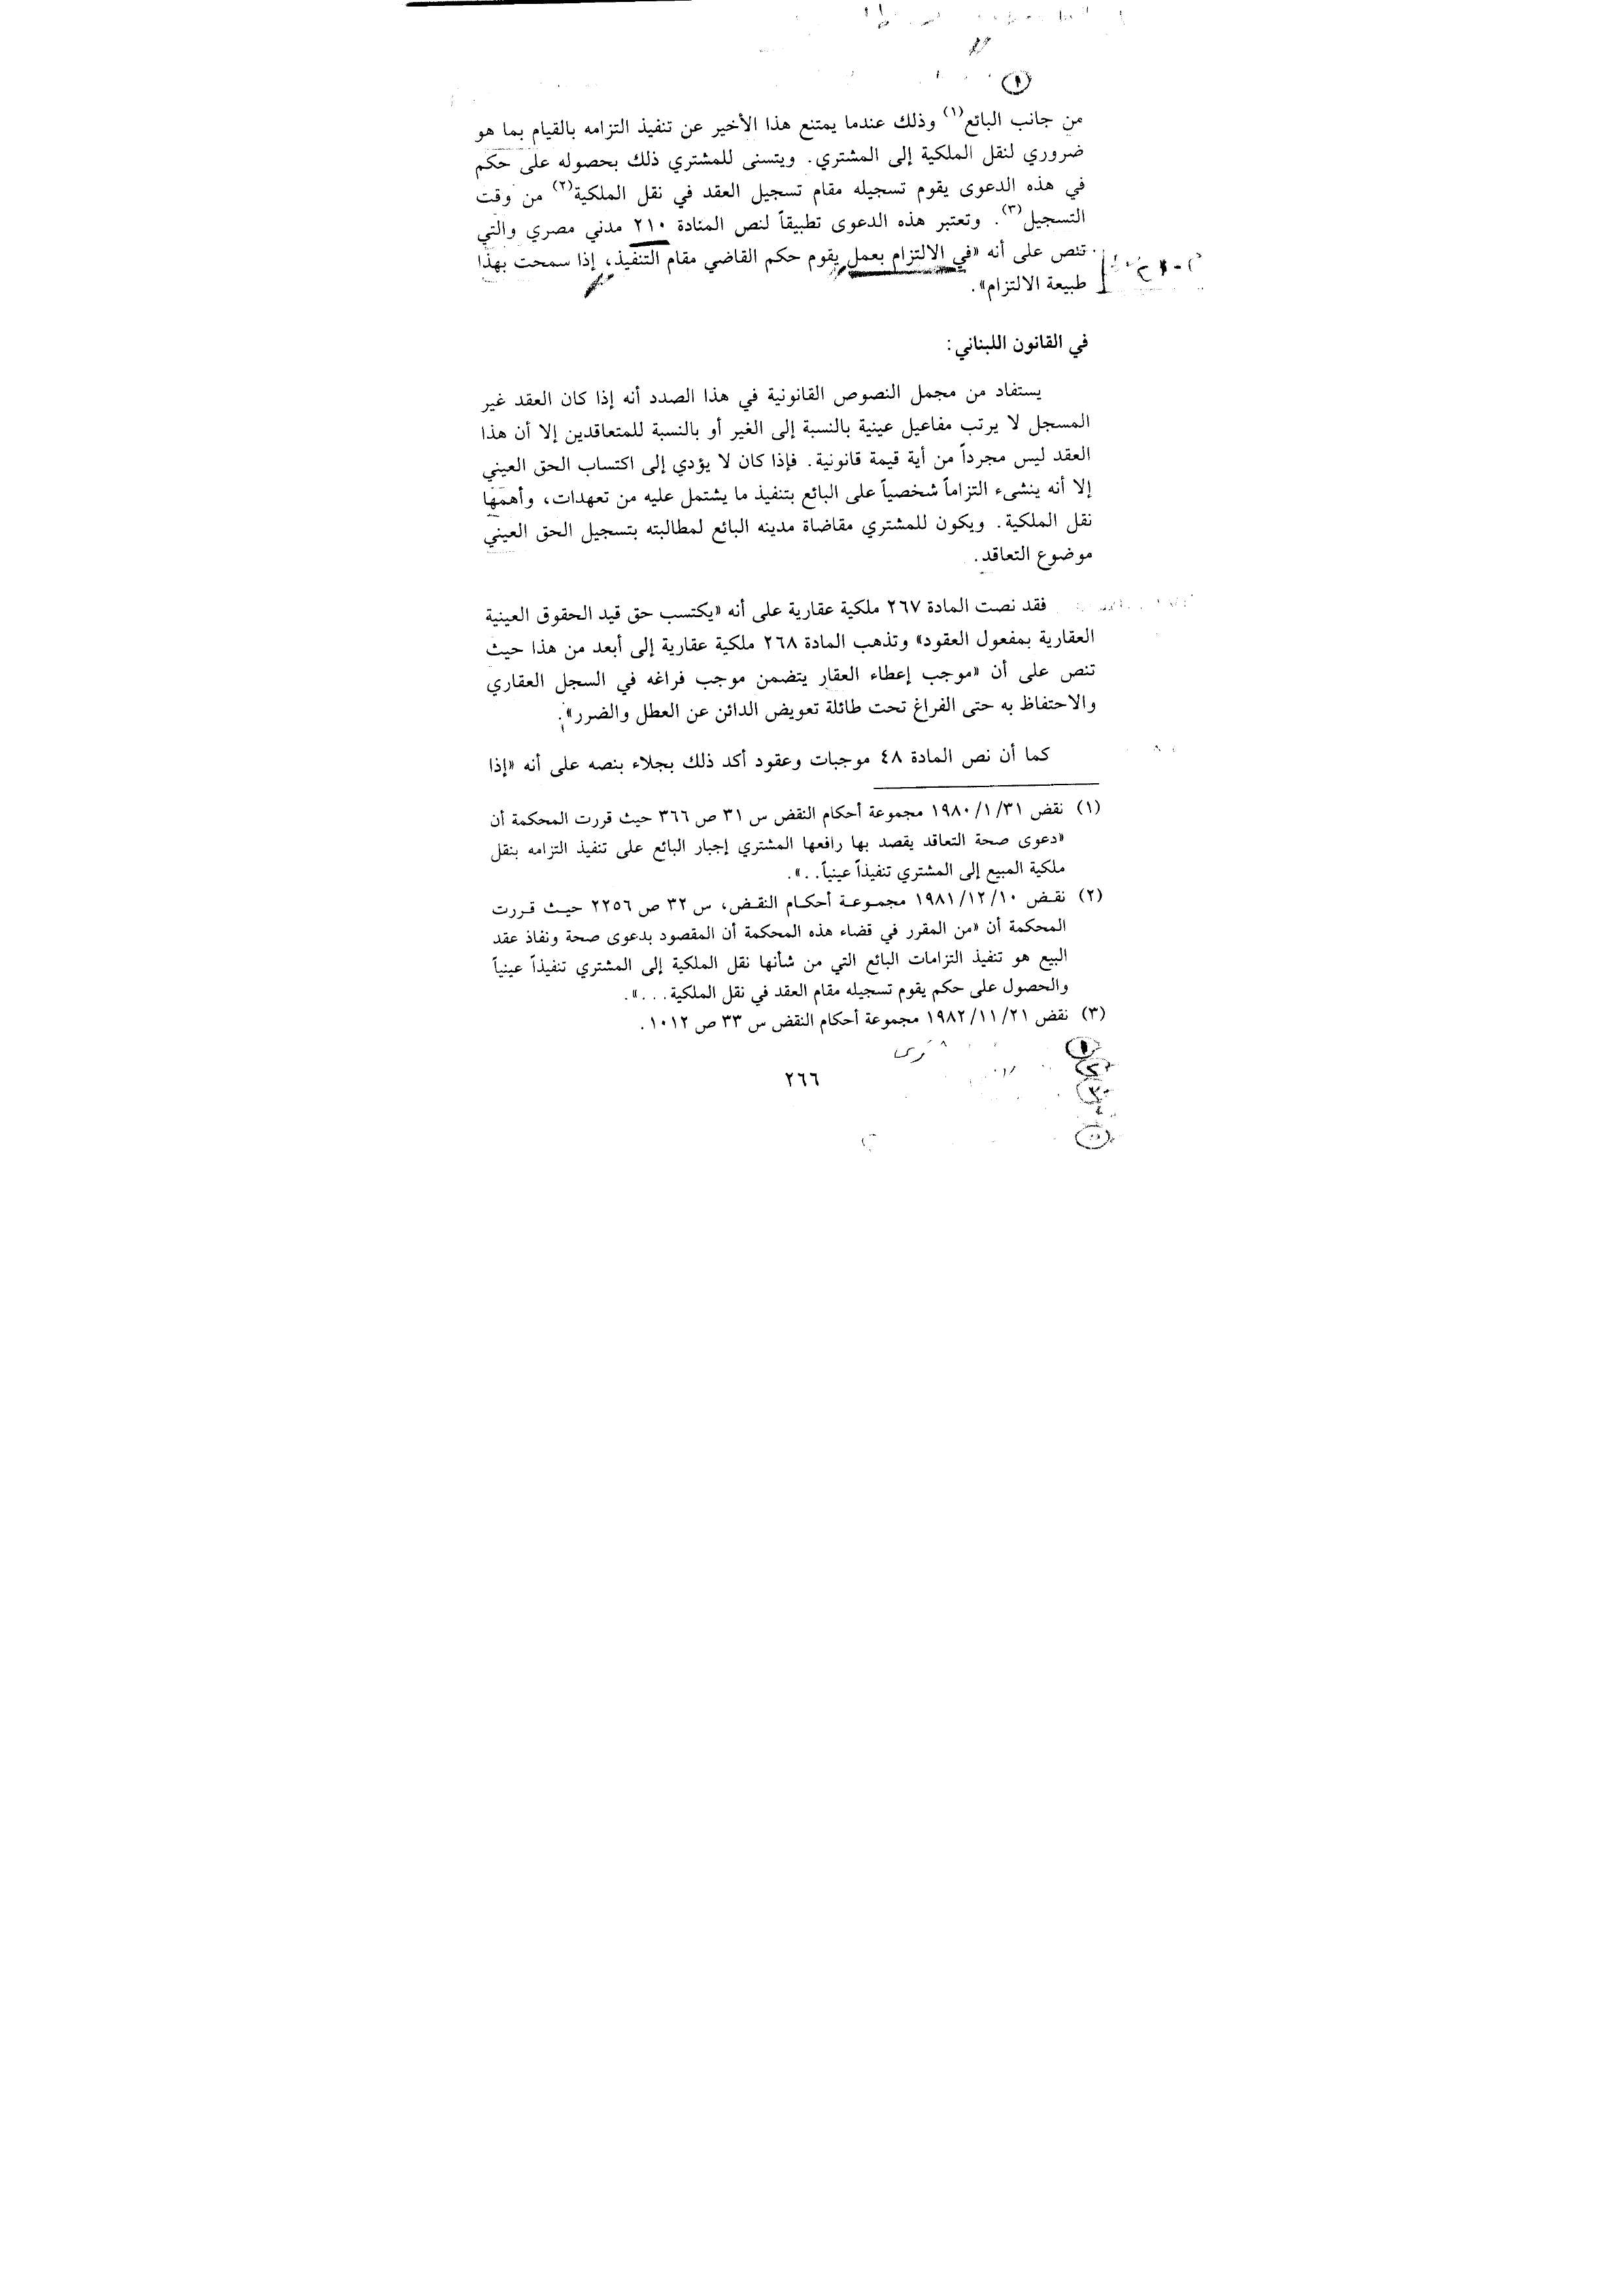 من جانب البائع(١) وذلك عندما يمتنع هذا الأخير عن تنفيذ التزامه بالقيام بما هو
ضروري لنقل الملكية إلى المشتري. ويتسنى للمشتري ذلك بحصوله على حكم
في هذه الدعوى يقوم تسجيله مقام تسجيل العقد في نقل الملكية(٢) من وقت
التسجيل(٣). وتعتبر هذه الدعوى تطبيقاً لنص المادة ٢١٠ مدني مصري والتي
تنص على أنه «في الالتزام بعمل يقوم حكم القاضي مقام التنفيذ، إذا سمحت بهذا
طبيعة الالتزام».
في القانون اللبناني:
يستفاد من مجمل النصوص القانونية في هذا الصدد أنه إذا كان العقد غير
المسجل لا يرتب مفاعيل عينية بالنسبة إلى الغير أو بالنسبة للمتعاقدين إلا أن هذا
العقد ليس مجرداً من أية قيمة قانونية. فإذا كان لا يؤدي إلى اكتساب الحق العيني
إلا أنه ينشىء التزاماً شخصياً على البائع بتنفيذ ما يشتمل عليه من تعهدات، وأهمها
نقل الملكية. ويكون للمشتري مقاضاة مدينه البائع لمطالبته بتسجيل الحق العيني
موضوع التعاقد.
فقد نصت المادة ٢٦٧ ملكية عقارية على أنه «يكتسب حق قيد الحقوق العينية
العقارية بمفعول العقود» وتذهب المادة ٢٦٨ ملكية عقارية إلى أبعد من هذا حيث
تنص على أن «موجب إعطاء العقار يتضمن موجب فراغه في السجل العقاري
والاحتفاظ به حتى الفراغ تحت طائلة تعويض الدائن عن العطل والضرر».
كما أن نص المادة ٤٨ موجبات وعقود أكد ذلك بجلاء بنصه على أنه «إذا
(١) نقض ١٩٨٠/١/٣١ مجموعة أحكام النقض س ٣١ ص ٣٦٦ حيث قررت المحكمة أن
«دعوى صحة التعاقد يقصد بها رافعها المشتري إجبار البائع على تنفيذ التزامه بنقل
ملكية المبيع إلى المشتري تنفيذاً عينياً..».
(٢) نقض ١٩٨١/١٢/١٠ مجموعة أحكام النقض، س ٣٢ ص ٢٢٥٦ حيث قررت
المحكمة أن «من المقرر في قضاء هذه المحكمة أن المقصود بدعوى صحة ونفاذ عقد
البيع هو تنفيذ التزامات البائع التي من شأنها نقل الملكية إلى المشتري تنفيذاً عينياً
والحصول على حكم يقوم تسجيله مقام العقد في نقل الملكية...».
(٣) نقض ١٩٨٢/١١/٢١ مجموعة أحكام النقض س ٣٣ ص ١٠١٢.
٢٦٦